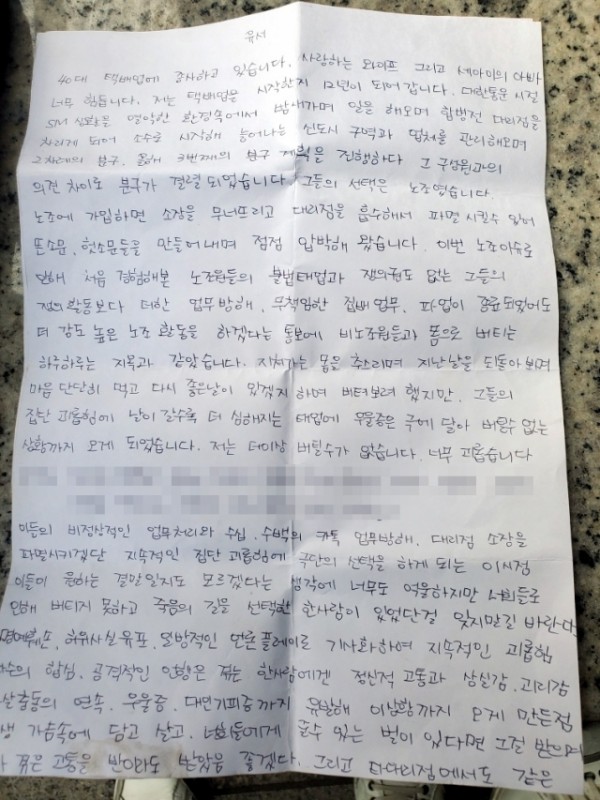 유서
40대 택배업에 종사하고 있습니다. 사랑하는 와이프 그리고 세아이의 아빠
너무 힘듭니다. 저는 택배업을 시작한지 12년이 되어갑니다. 대한통운 시절
SM 신화를 열악한 환경속에서 밤새가며 일을 해오며 합병전 대리점을
차리게 되어 소수로 시작해 늘어나는 신도시 구역과 업체를 관리해오며
2차례의 분구. 올해 3번째의 분구 계획을 진행하다 그 구성원과의
의견 차이로 분구가 결렬 되었습니다 그들의 선택은 노조였습니다.
노조에 가입하면 소장을 무너뜨리고 대리점을 흡수해서 파멸 시킬수 있어
뜬소문, 헛소문들을 만들어내며 점점 압박해 왔습니다. 이번 노조이슈로
인해 처음 경험해본 노조원들의 불법태업과 쟁의권도 없는 그들의
쟁의활동보다 더한 업무방해, 무책임한 집배업무, 파업이 종료되었어도
더 강도 높은 노조 활동을 하겠다는 통보에 비노조원들과 몸으로 버티는
하루하루는 지옥과 같았습니다. 지쳐가는 몸을 추스리며 지난날을 되돌아보며
마음 단단히 먹고 다시 좋은날이 있겠지 하며 버텨보려 했지만, 그들의
집단 괴롭힘에 날이 갈수록 더 심해지는 태업에 우울증은 극에 달아 버틸수 없는
상황까지 오게 되었습니다. 저는 더이상 버틸수가 없습니다. 너무 괴롭습니다
이들의 비정상적인 업무처리와 수십, 수백의 카톡 업무방해, 대리점 소장을
파멸시키겠단 지속적인 집단 괴롭힘에 극단의 선택을 하게 되는 이시점
이들이 원하는 결말일지도 모르겠다는 생각에 너무도 억울하지만 너희들로
인해 버티지 못하고 죽음의 길을 선택한 한사람이 있었단걸 잊지말길 바란다
명예훼손, 허위사실유포, 일방적인 언론플레이로 기사화하여 지속적인 괴롭힘
다수의 합심, 공격적인 언행은 겪는 한사람에겐 정신적 고통과 상실감, 괴리감
상실들의 연속, 우울증, 대인기피증까지 유발해 이상황까지 오게 만든점
생 가슴속에 담고 살고. 너희들에게 줄수 있는 벌이 있다면 그걸 받아
겪은 고통을 받아라도 받았음 좋겠다. 그리고 타대리점에서도 같은